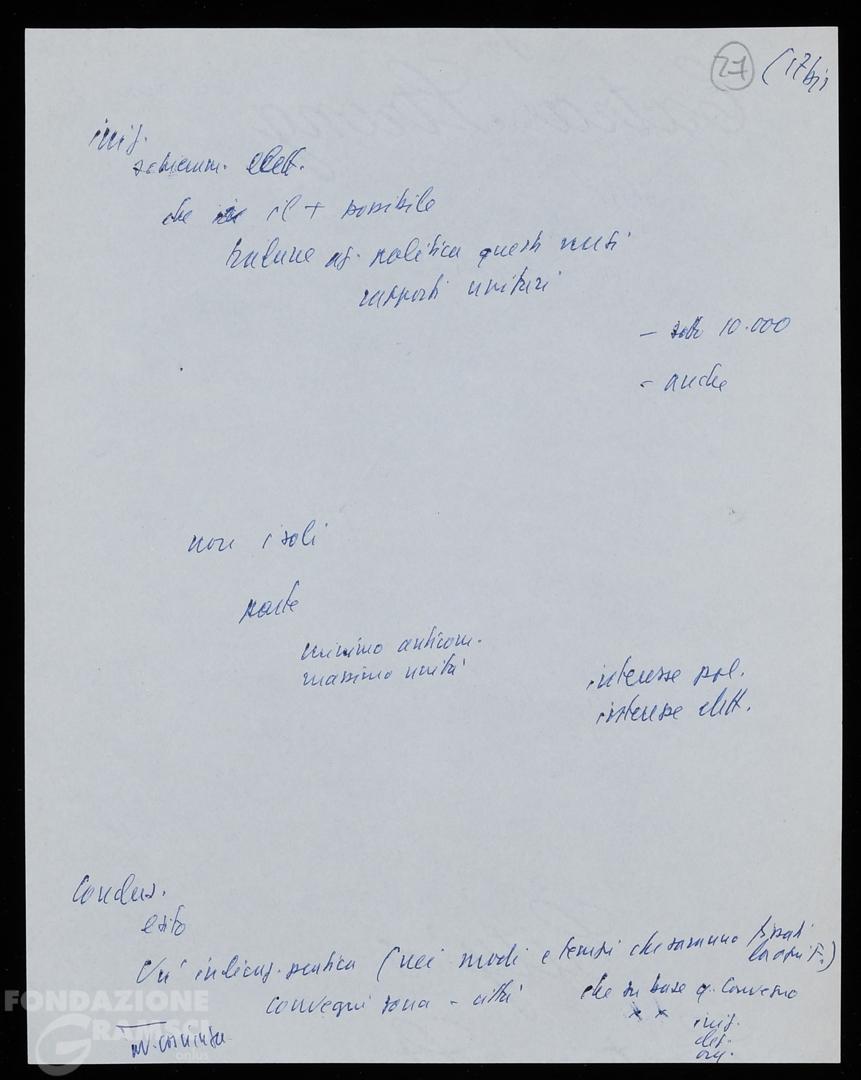 27 (17bis
iniz.
schieram. elett.
che il + possibile
politica questi mesi
rapporti unitari
- sotto 10.000
- anche
non isoli
parte
minimo anticom.
massimo unità
interesse pol.
interesse elett.
Conclus.
esito
Un' indicaz. pratica (nei modi e tempi che saranno fissati
convegni zona - città
che su base q. convegno
x x
iniz.
org.
FONDAZIONE
GRAMSCI
onlus